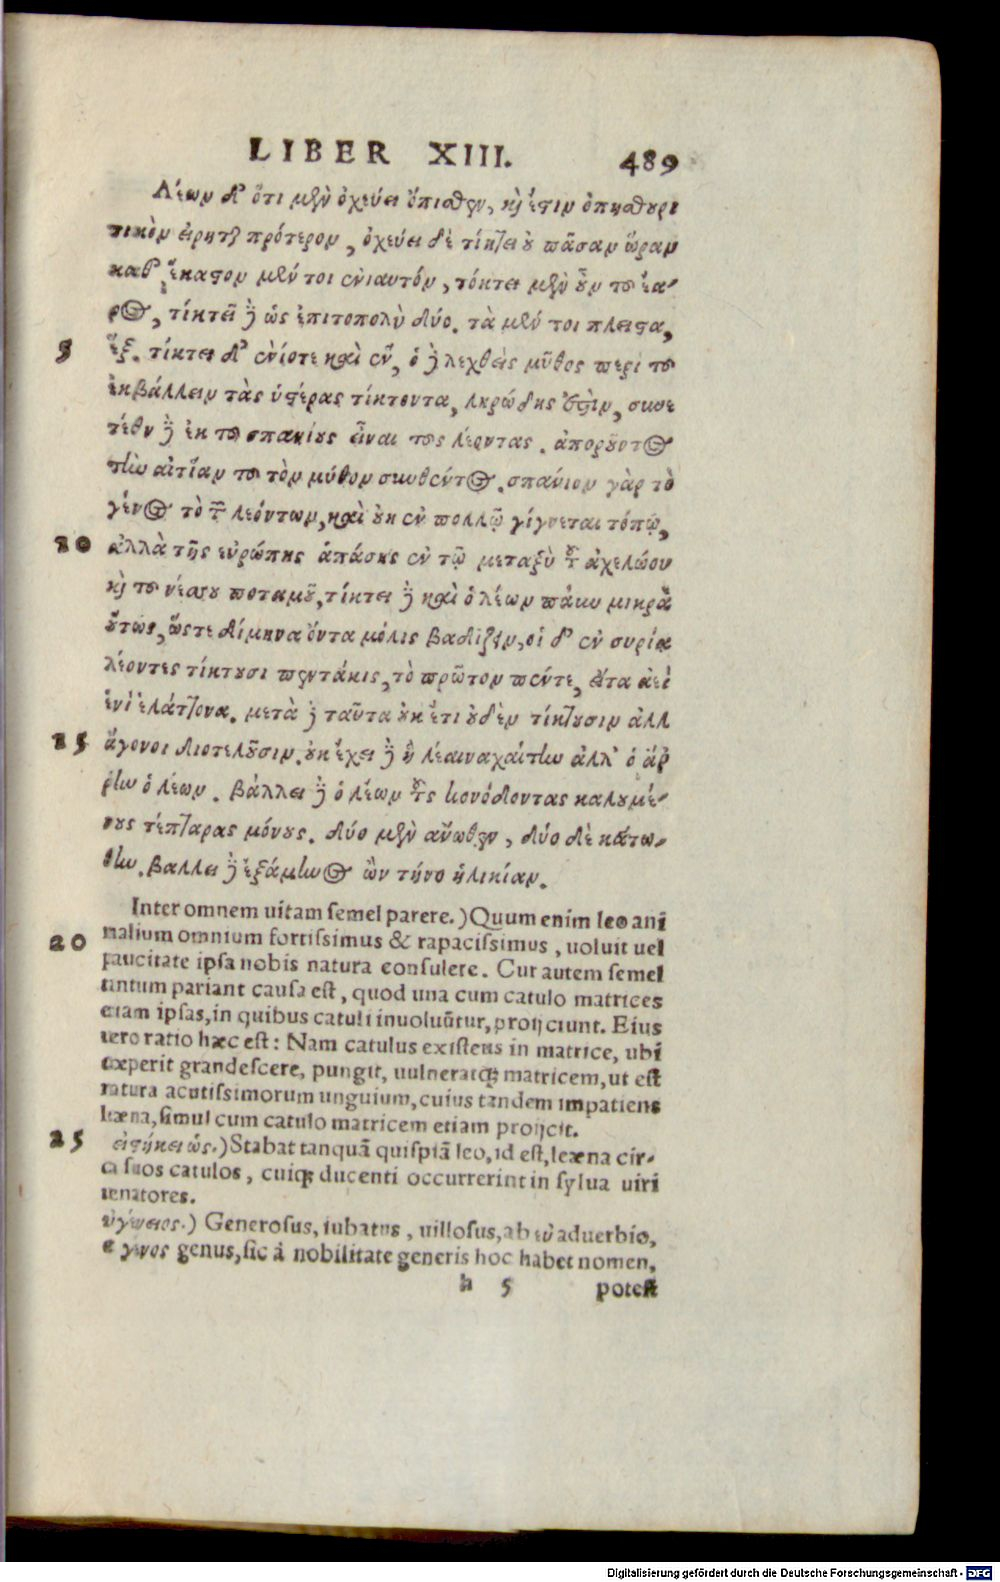 LIBER XIII. 489
Λέων δ' ὅτι μὲν ὀχεύει ὄπισθεν, καὶ ἔστιν ὀπισθουρη
τικὸν εἴρηται πρότερον, ὀχεύει δὲ τίκτει οὐ πᾶσαν ὥραν
καθ' ἕκαστον μέν τοι ἐνιαυτόν, τίκτει μὲν οὖν τοῦ ἔα-
ρος, τίκτει δὲ ὡς ἐπιτοπολὺ δύο. τὰ μέν τοι πλεῖστα,
5 ἕξ. τίκτει δ' ἐνίοτε καὶ ἕν, ὁ δὲ λεχθεὶς μῦθος περὶ τοῦ
ἐκβάλλειν τὰς ὑστέρας τίκτοντα, ληρώδης ἐστιν, συνε
τέθη δὲ ἐκ τοῦ σπανίους εἶναι τοὺς λέοντας. ἀποροῦντος
τὴν αἰτίαν τοῦ τὸν μύθον συνθέντος. σπάνιον γὰρ τὸ
γένος τὸ τῶν λεόντων, καὶ οὐκ ἐν πολλῷ γίγνεται τόπῳ,
10 ἀλλὰ τῆς εὐρώπης ἁπάσης ἐν τῷ μεταξὺ τοῦ ἀχελώου
καὶ τοῦ νέσσου ποταμοῦ, τίκτει δὲ καὶ ὁ λέων πάνυ μικρὰ
οὕτως, ὥστε δίμηνα ὄντα μόλις βαδίζειν, οἱ δ' ἐν συρίᾳ
λέοντες τίκτουσι πεντάκις, τὸ πρῶτον πέντε, εἶτα ἀεὶ
ἑνὶ ἐλάττονα. μετὰ δὲ ταῦτα οὐκ ἔτι οὐδὲν τίκτουσιν ἀλλ
15 ἄγονοι διατελοῦσιν. οὐκ ἔχει δὲ ἡ λέαινα χαίτην ἀλλ' ὁ ἄρ
ρην ὁ λέων. βάλλει δὲ ὁ λέων τοὺς κυνόδοντας καλουμέ-
νους τέτταρας μόνους. δύο μὲν ἄνωθεν, δύο δὲ κάτω-
θεν. βαλλει δὲ ἑξάμηνος ὢν τὴν ἡλικίαν.
Inter omnem uitam semel parere.) Quum enim leo ani
20 malium omnium fortissimus & rapacissimus, uoluit uel
paucitate ipsa nobis natura consulere. Cur autem semel
tantum pariant causa est, quod una cum catulo matrices
etiam ipsas, in quibus catuli inuoluũtur, proijciunt. Eius
uero ratio hæc est: Nam catulus existens in matrice, ubi
cœperit grandescere, pungit, uulneratq; matricem, ut est
natura acutissimorum unguium, cuius tandem impatiens
leæna, simul cum catulo matricem etiam proijcit.
25 εἱστήκει ὡς.) Stabat tanquã quispiã leo, id est, leæna cir-
ca suos catulos, cuiq; ducenti occurrerint in sylua uiri
uenatores.
ἠϋγένειος.) Generosus, iubatus, uillosus, ab εὐ aduerbio,
& γένος genus, sic à nobilitate generis hoc habet nomen,
h 5 potest
Digitalisierung gefördert durch die Deutsche Forschungsgemeinschaft - DFG